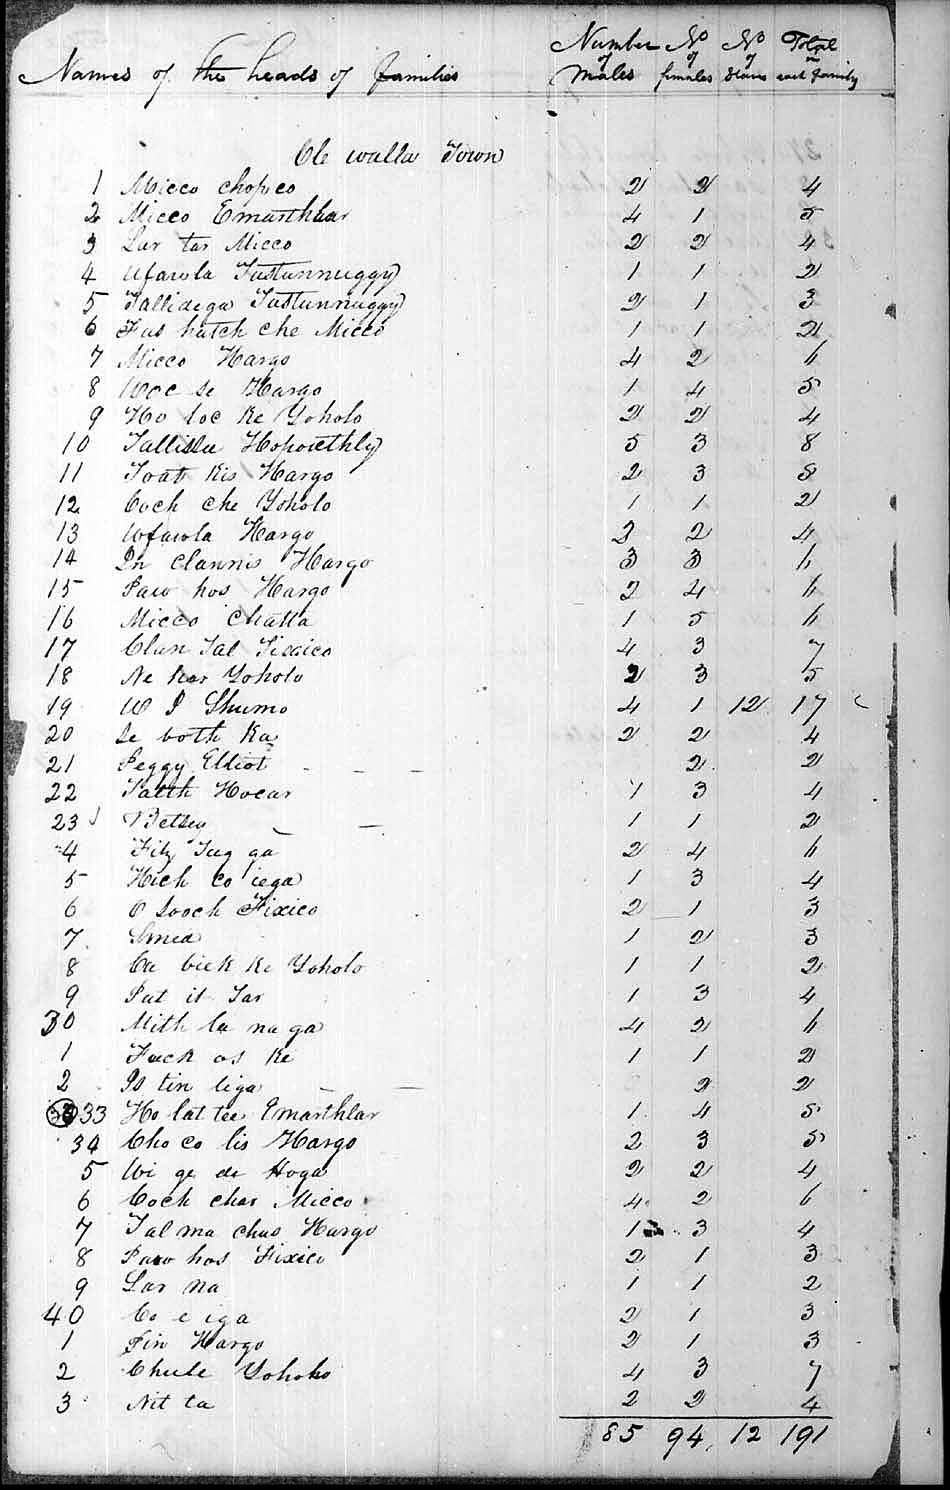 Names of the heads of families Number of Males No of females No of Slaves Total in each family
Ole walla Town
1 Micco chopco 2 2 4
2 Micco Emarthlar 4 1 5
3 Lar tar Micco 2 2 4
4 Ufawla Tustunnuggy 1 1 2
5 Tallidega Tustunnuggy 2 1 3
6 Fus hatch che Micco 1 1 2
7 Micco Hargo 4 2 6
8 Woc se Hargo 1 4 5
9 Ho loc ke Yoholo 2 2 4
10 Tallissa Hopoiethly 5 3 8
11 Toat kis Hargo 2 3 5
12 Coch che Yoholo 1 1 2
13 Ufawla Hargo 2 2 4
14 In clannis Hargo 3 3 6
15 Paw hos Hargo 2 4 6
16 Micco Chatta 1 5 6
17 Clan Tal Fixico 4 3 7
18 Ne har Yoholo 2 3 5
19 W I Shumo 4 1 12 17
20 Se both ka 2 2 4
21 Peggy Elliot - - - 2 2
22 Talth Hocar 1 3 4
23 Betsey 1 1 2
4 Fitz Tug ga 2 4 6
5 Hich co iega 1 3 4
6 O sooch Fixico 2 1 3
7 1 2 3
8 Ca bick ke Yoholo 1 1 2
9 Pat it Tar 1 3 4
30 Mith la na ga 4 2 6
1 Tuck os ke 1 1 2
2 Is tin liga 2 2
33 33 Ho lat tee Emarthlar 1 4 5
34 Cho co lis Hargo 2 3 5
5 Wi ge de Hoga 2 2 4
6 Coch char Micco 4 2 6
7 Tal ma chus Hargo 1 3 4
8 Paw hos Fixico 2 1 3
9 Lar na 1 1 2
40 Co e iga 2 1 3
1 Fin Hargo 2 1 3
2 Chule Yoholo 4 3 7
3 Nit ta 2 2 4
85 94 12 191